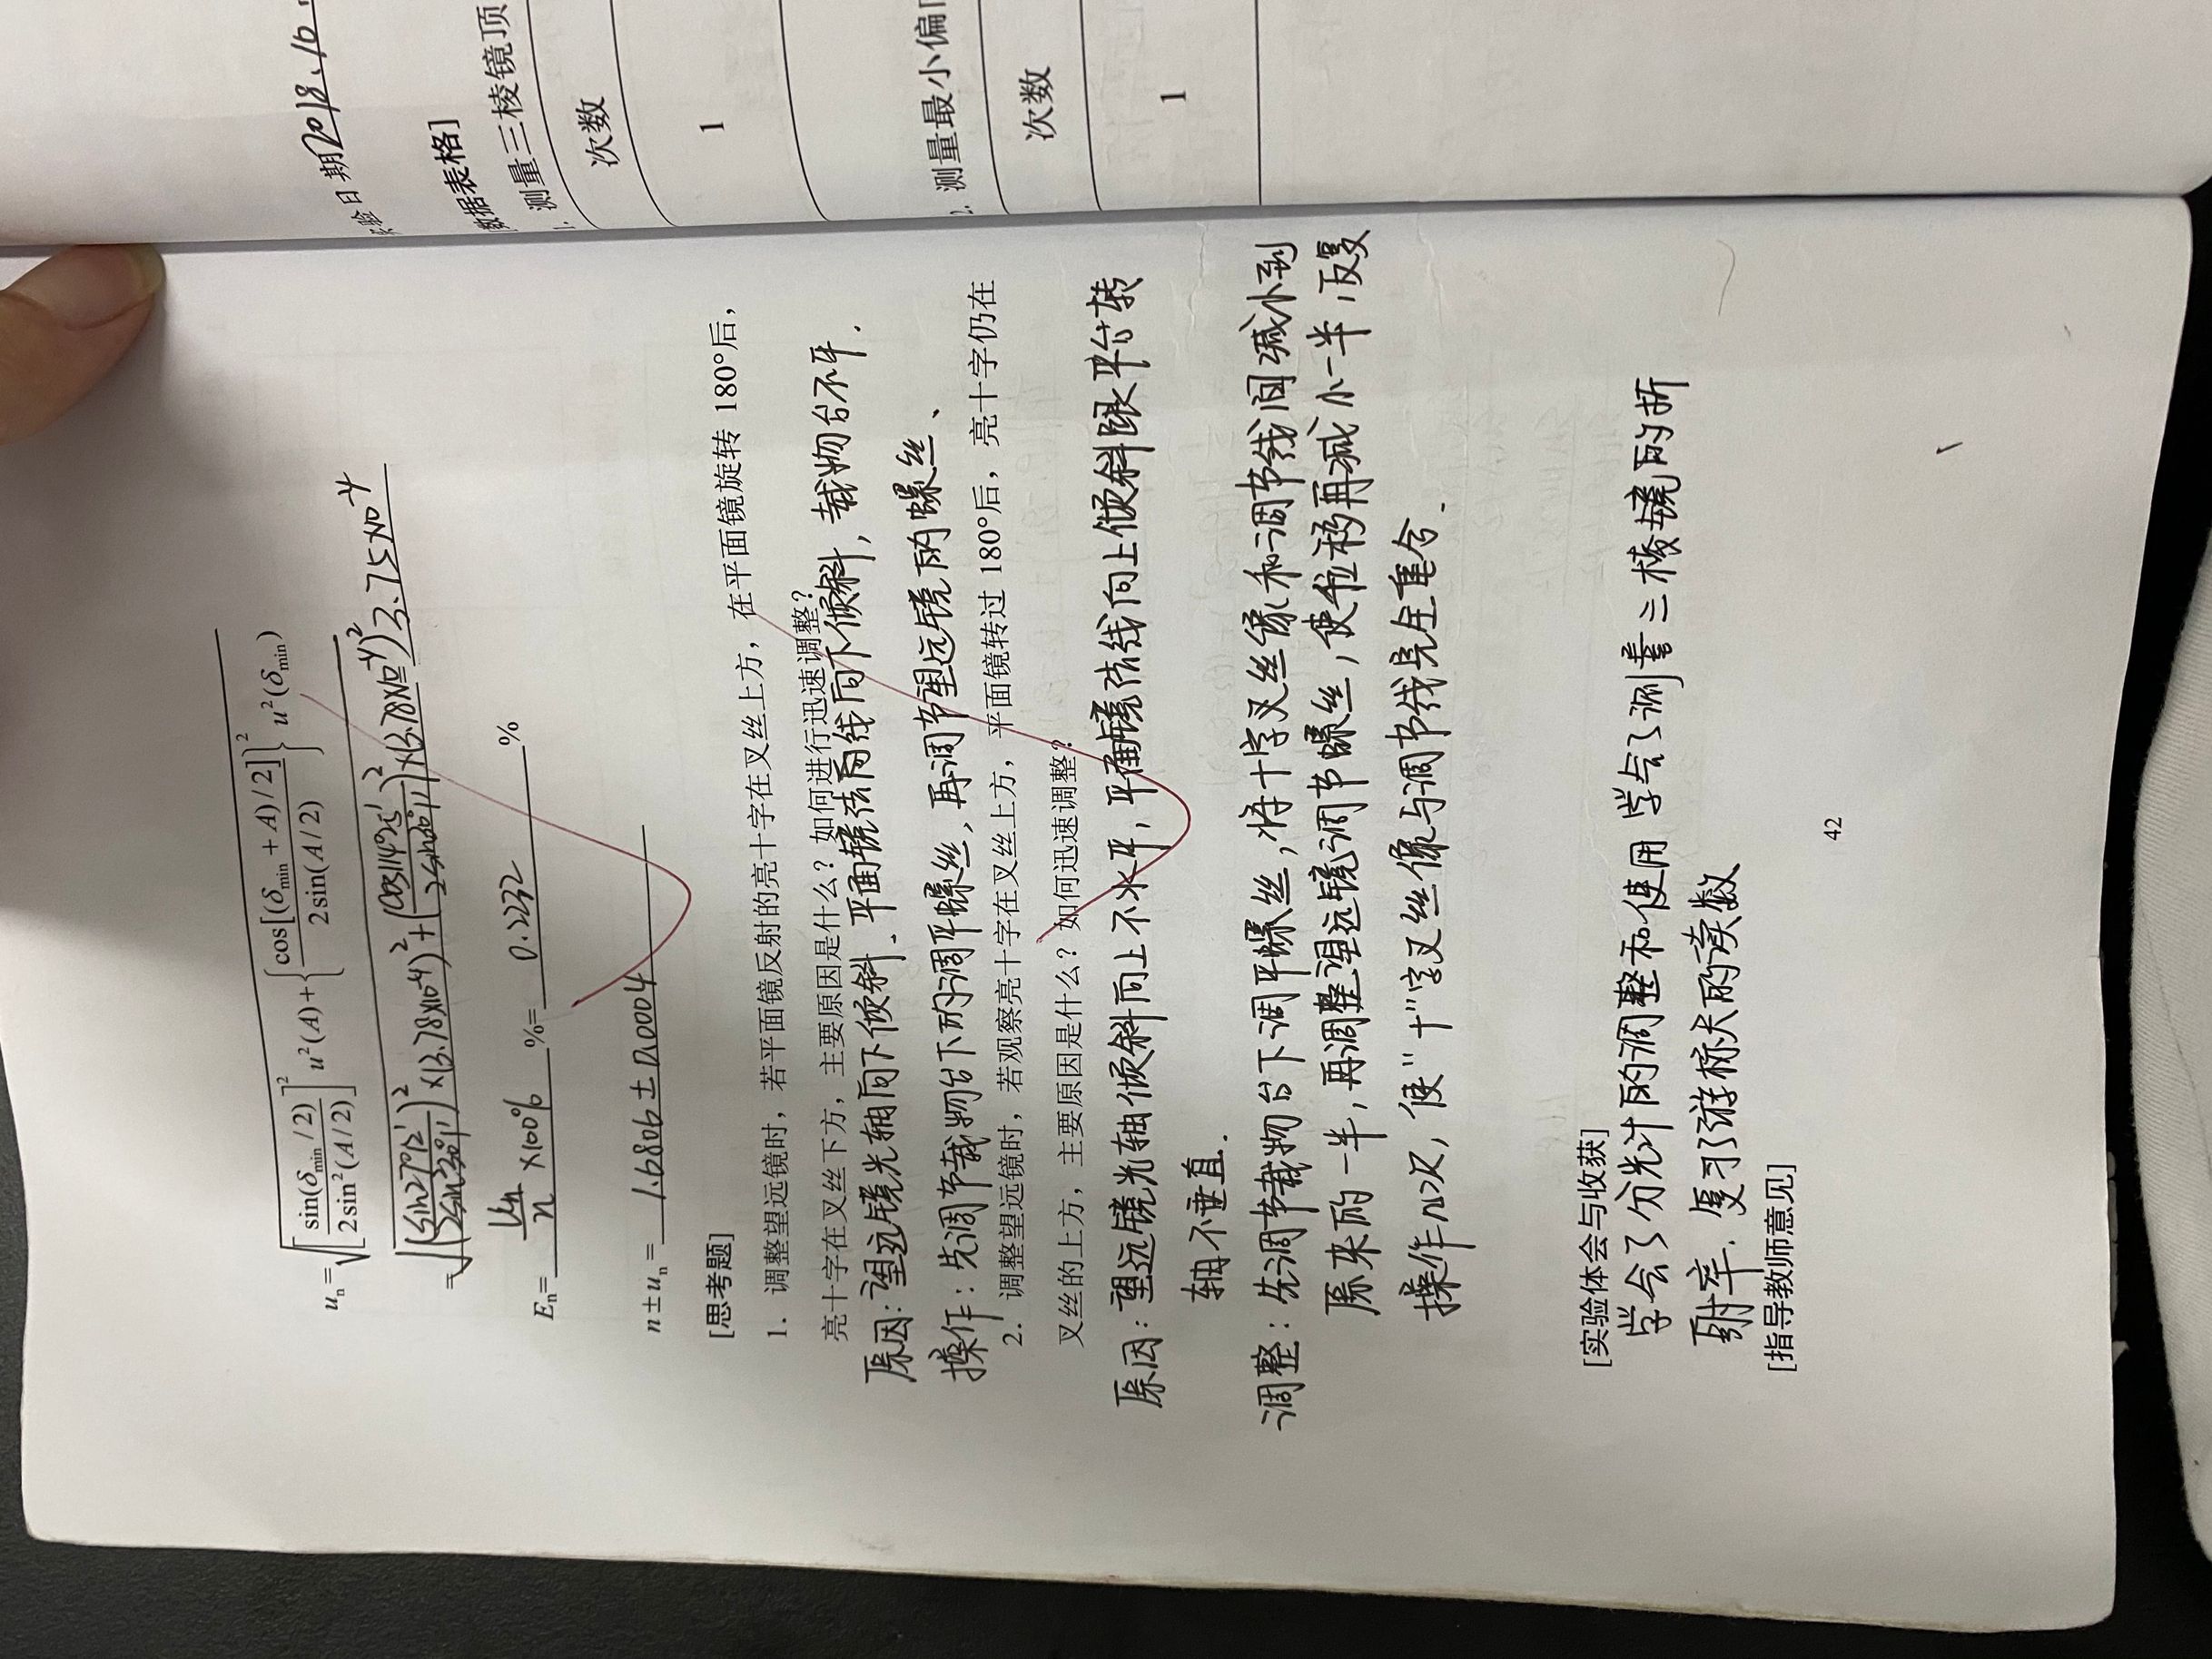 u_n=√([sin(δ_min/2)/2sin²(A/2)]² u²(A)+{cos[(δ_min+A)/2]/2sin(A/2)}² u²(δ_min))
=√((sin27°12'/2sin²30°1')²×(3.78×10⁻⁴)²+(cos114°25'/2sin30°1')²×(3.78×10⁻⁴)² 3.75×10⁻⁴
E_n= u_n/n ×100% %= 0.2232 %
n±u_n= 1.6806±0.0004
[思考题]
1. 调整望远镜时，若平面镜反射的亮十字在叉丝上方，在平面镜旋转 180°后，
亮十字在叉丝下方，主要原因是什么？如何进行迅速调整？
原因:望远镜光轴向下倾斜.平面镜法两线向下倾斜,载物台不平.
操作:先调节载物台下的调平螺丝,再调节望远镜的螺丝、
2. 调整望远镜时，若观察亮十字在叉丝上方，平面镜转过 180°后，亮十字仍在
叉丝的上方，主要原因是什么？如何迅速调整？
原因:望远镜光轴倾斜向上不水平,平面镜法线向上倾斜跟平台转
轴不垂直.
调整:先调节载物台下调平螺丝,将十字叉丝像和调节线间减小到
原来的一半,再调整望远镜调节螺丝,使位移再减小一半,反复
操作几次,使"十"字叉丝像与调节线完全重合.
[实验体会与收获]
学会了分光计的调整和使用 学会了测量三棱镜的折
射率.复习了游标尺的读数
[指导教师意见]
42
实验日期2018.10
[数据表格]
1. 测量三棱镜顶
次数
1
2. 测量最小偏
次数
1